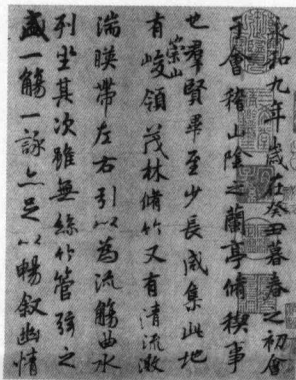 永和九年歲在癸丑暮春之初會
于會稽山陰之蘭亭脩稧事
也羣賢畢至少長咸集此地
有崇山峻領茂林脩竹又有清流激
湍暎帶左右引以為流觴曲水
列坐其次雖無絲竹管弦之
盛一觴一詠亦足以暢叙幽情